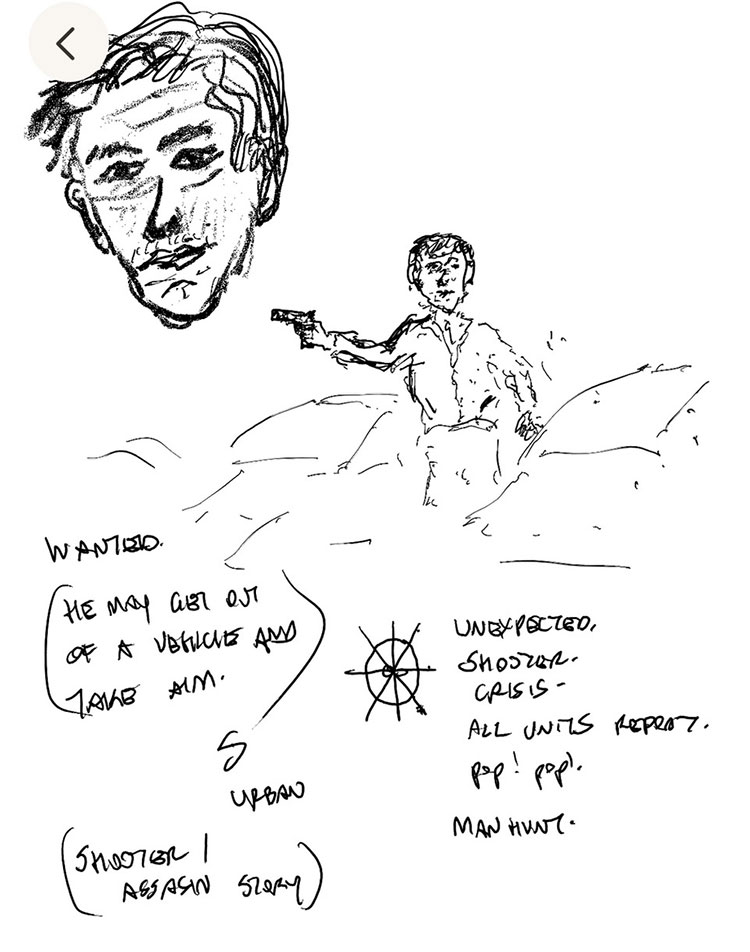 WANTED.
(HE MAY GET OUT
OF A VEHICLE AND
TAKE AIM.
S
URBAN
(SHOOTER /
ASSASIN STORY)
UNEXPECTED.
SHOOTER.
CRISIS-
ALL UNITS REPEAT.
pop! pop!.
MAN HUNT.